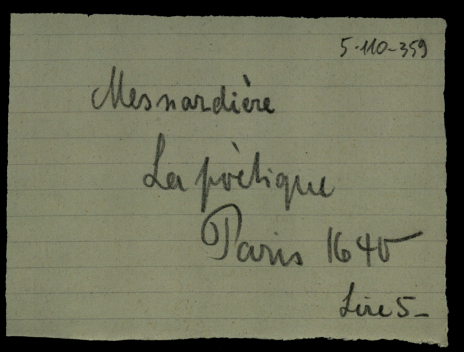 5-110-359
Mesnardière
La poètique
Paris 1640
Lire 5-